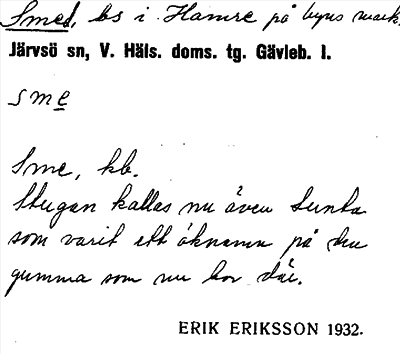 Smed, bs i Hamre på byns mark.
Järvsö sn, V. Häls. doms. tg. Gävleb. l.
sme
Sme, kb.
Stugan kallas nu även Sunta
som varit ett öknamn på den
gumma som nu bor där.
ERIK ERIKSSON 1932.